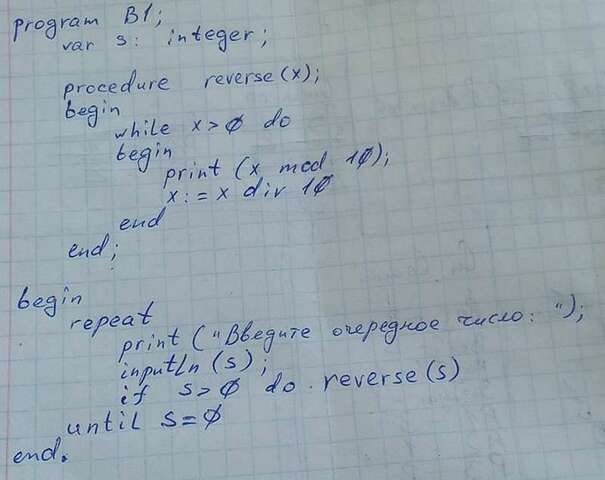 program B1;
var s: integer;
procedure reverse(x);
begin
while x>0 do
begin
print (x mod 10);
x:= x div 10
end
end;
begin
repeat
print ("Введите очередное число: ");
inputLn (s);
if s>0 do reverse(s)
until s=0
end.